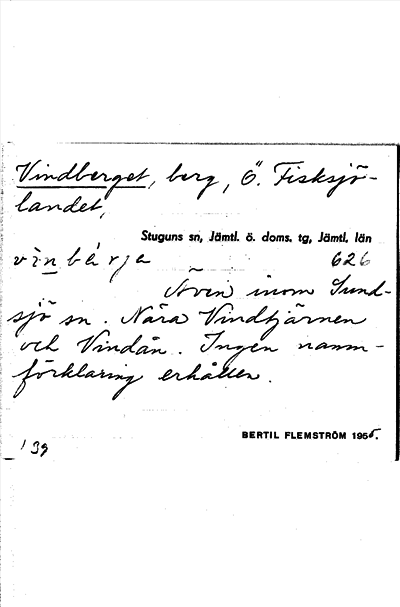 Vindberget, berg, Ö. Fisksjö-
landet,
Stuguns sn, Jämtl. ö. doms. tg, Jämtl. län
vìnbárja 626
Även inom Sund-
sjö sn. Nära Vindtjärnen
och Vindån. Ingen namn-
förklaring erhållen.
BERTIL FLEMSTRÖM 1955.
139